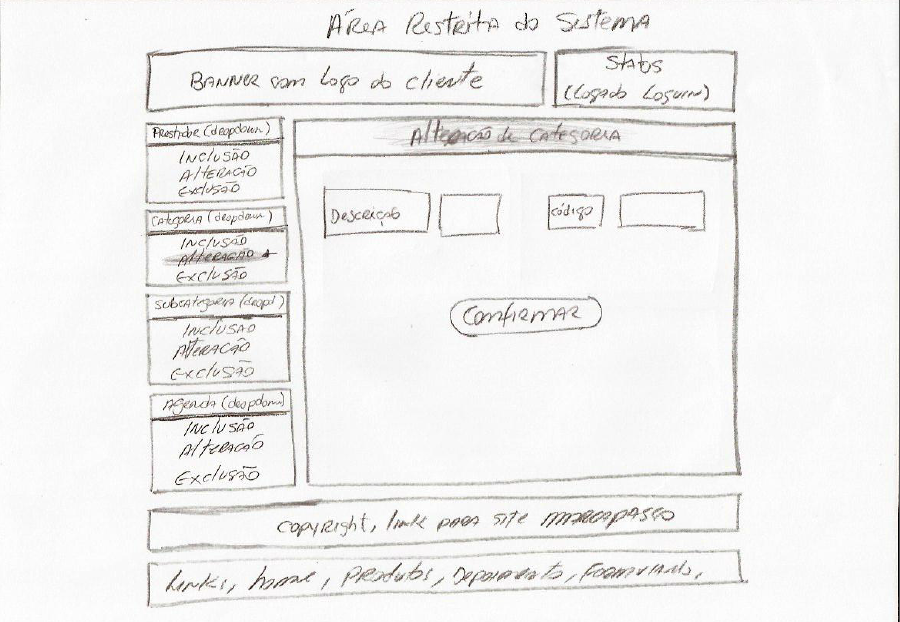 Área Restrita do Sistema
Banner com Logo do cliente
Status
(Logado Loguin)
Prestador (dropdown)
Inclusão
Alteração
Exclusão
Categoria (dropdown)
Inclusão
Alteração
Exclusão
Subcategoria (drop↓)
Inclusão
Alteração
Exclusão
Agenda (dropdown)
Inclusão
Alteração
Exclusão
Alteração de Categoria
Descrição
código
Confirmar
copyright, link para site marcapasso
Links, home, Produtos, Depoimento,